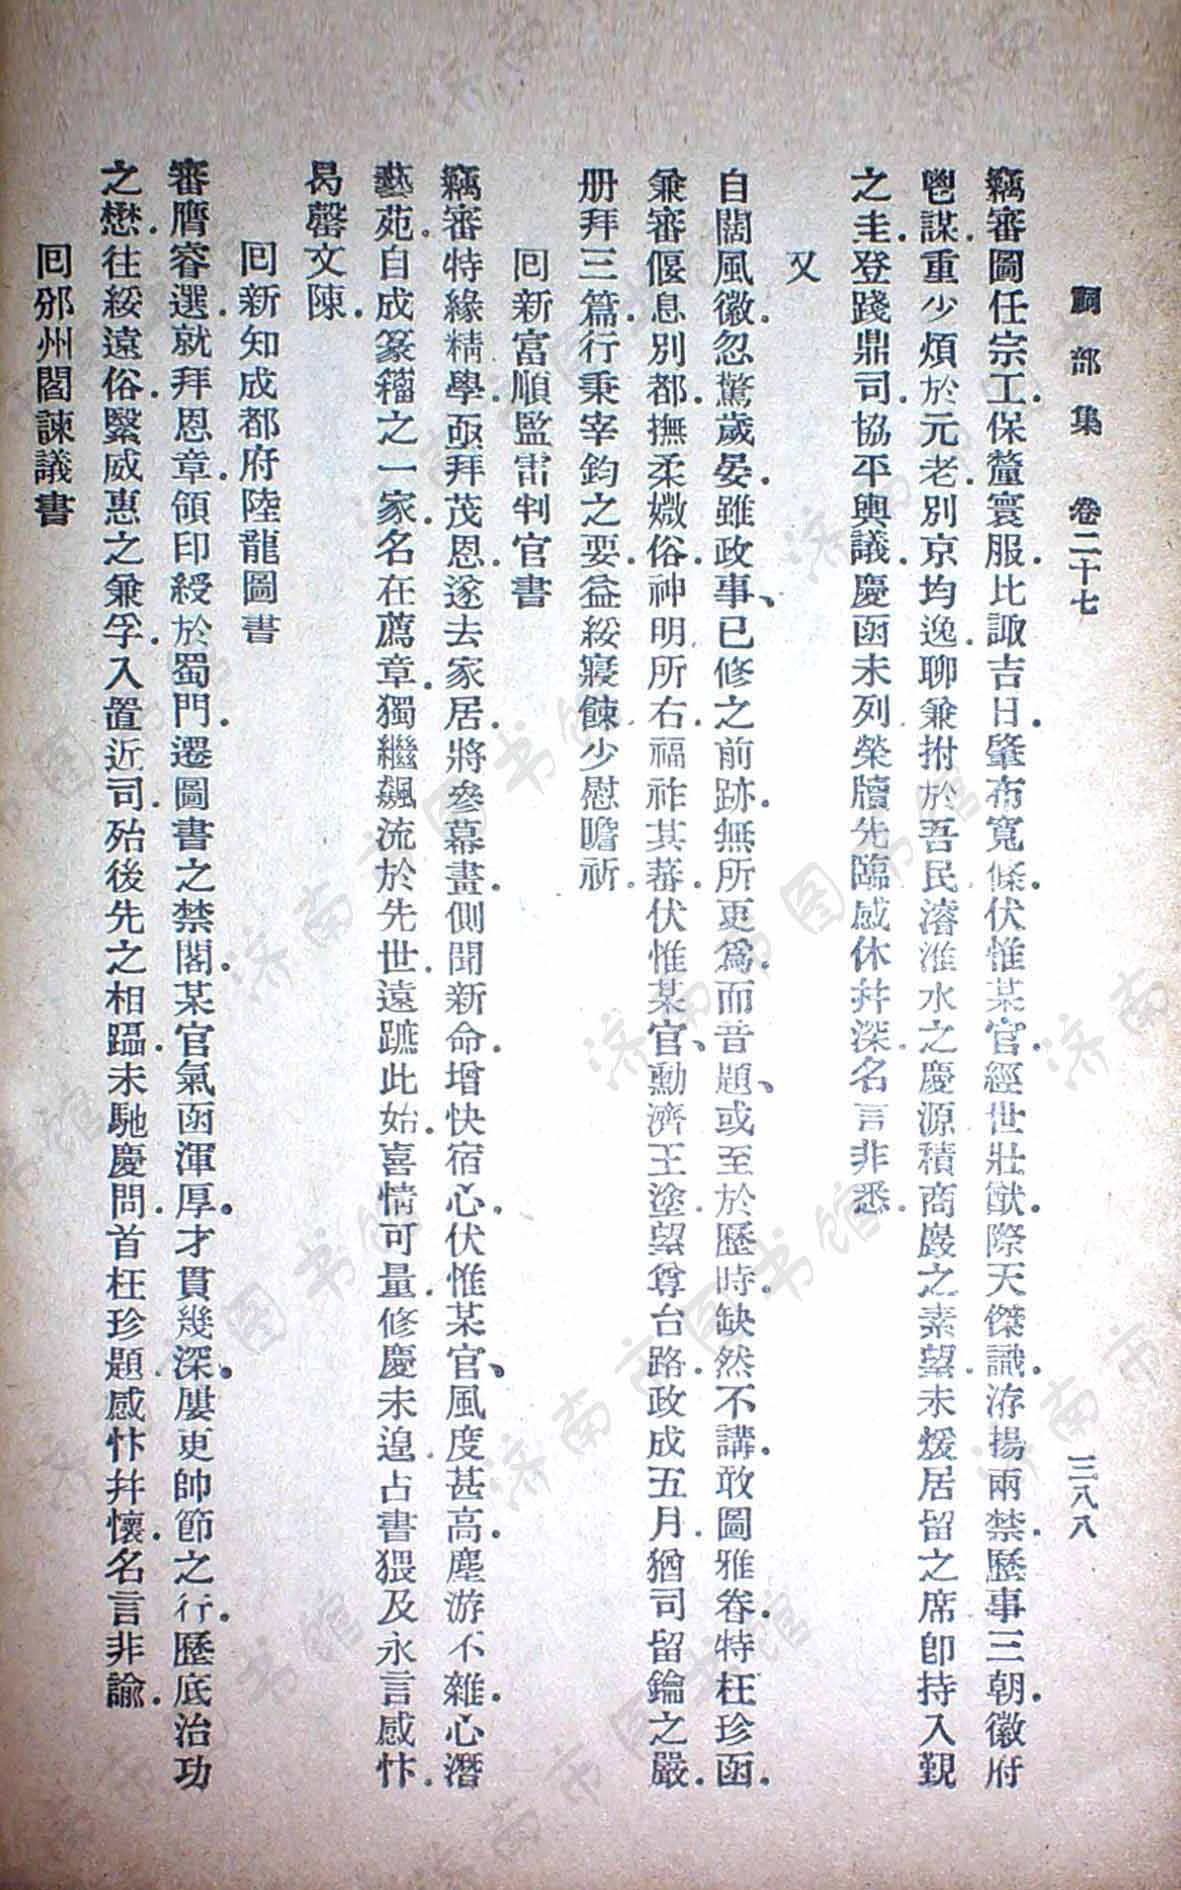 祠部集　卷二十七　三八八
竊審圖任宗工．保釐寰服．比諏吉日．肇布寬條．伏惟某官．經世壯猷．際天傑識．洊揚兩禁．歷事三朝．徽府
鬯謀．重少煩於元老．別京均逸．聊兼拊於吾民．濬淮水之慶源．積商巖之素望．未煖居留之席．卽持入覲
之圭．登踐鼎司．協平輿議．慶函未列．榮牘先臨．感休幷深．名言非悉．
又
自闊風徽．忽驚歲晏．雖政事、已修之前跡．無所更爲．而音題、或至於歷時．缺然不講．敢圖雅眷．特枉珍函．
兼審偃息別都．撫柔媺俗．神明所右．福祚其蕃．伏惟某官、勳濟王塗．望尊台路．政成五月．猶司留鑰之嚴．
册拜三篇．行秉宰鈞之要．益綏寢餗．少慰瞻祈．
回新富順監雷判官書
竊審特緣精學．亟拜茂恩．遂去家居．將參幕畫．側聞新命．增快宿心．伏惟某官、風度甚高．塵游不雜．心潛
藝苑．自成篆籀之一家．名在薦章．獨繼飆流於先世．遠蹠此始．喜情可量．修慶未遑．占書猥及．永言感忭．
曷罄文陳．
回新知成都府陸龍圖書
審膺睿選．就拜恩章．領印綬於蜀門．遷圖書之禁閣．某官氣函渾厚．才貫幾深．屢更帥節之行．歷底治功
之懋．往綏遠俗．繄威惠之兼孚．入置近司．殆後先之相躡．未馳慶問．首枉珍題．感忭幷懷．名言非諭．
回邠州閻諫議書